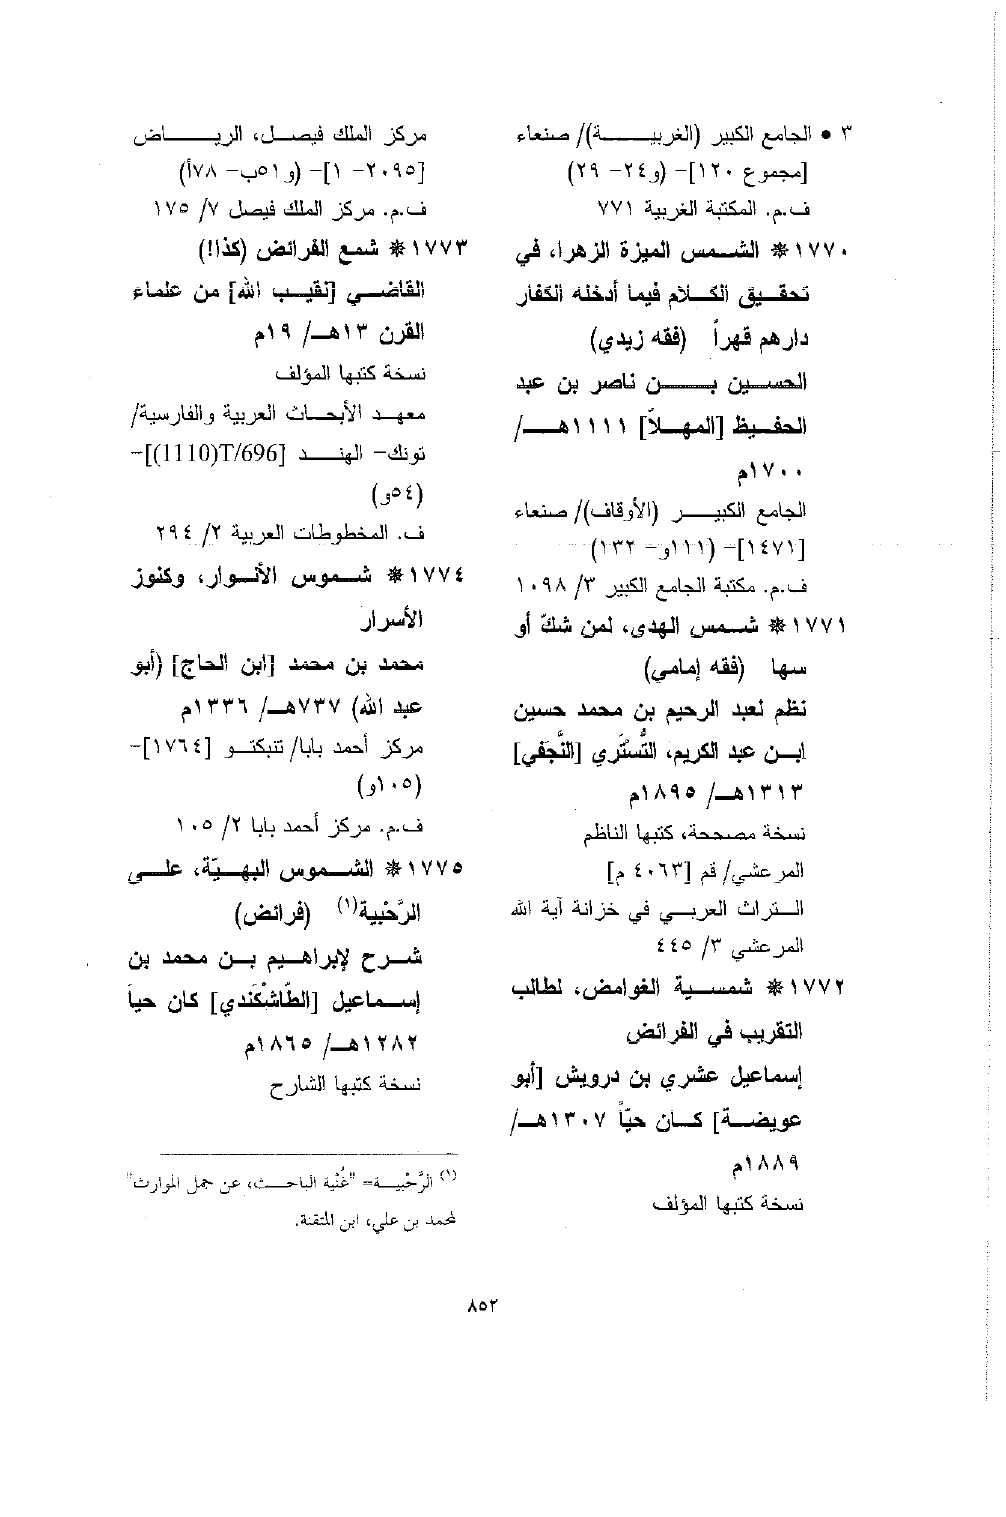 ٣ • الجامع الكبير (الغربيـــــة)/ صنعاء
[مجموع ١٢٠]- (و٢٤- ٢٩)
ف.م. المكتبة الغربية ٧٧١
١٧٧٠* الشـمس الميزة الزهرا، في
تحقـيق الكـلام فيما أدخله الكفار
دارهم قهراً (فقه زيدي)
الحسـين بـــن ناصر بن عبد
الحفـيظ [المهـلاّ] ١١١١هــ/
١٧٠٠م
الجامع الكبيـــر (الأوقاف)/ صنعاء
[١٤٧١]- (١١١و- ١٣٢)
ف.م. مكتبة الجامع الكبير ٣/ ١٠٩٨
١٧٧١* شـمس الهدى، لمن شكّ أو
سها (فقه إمامي)
نظم لعبد الرحيم بن محمد حسين
ابـن عبد الكريم، التُّسْتَري [النَّجَفي]
١٣١٣هـ/ ١٨٩٥م
نسخة مصححة، كتبها الناظم
المرعشي/ قم [٤٠٦٣ م]
الـتراث العربـي في خزانة آية الله
المرعشي ٣/ ٤٤٥
١٧٧٢* شمسـية الغوامض، لطالب
التقريب في الفرائض
إسماعيل عشري بن درويش [أبو
عويضـة] كـان حيّاً ١٣٠٧هـ/
١٨٨٩م
نسخة كتبها المؤلف
مركز الملك فيصـل، الريـــــاض
[٢٠٩٥- ١]- (و٥١ب- ٧٨أ)
ف.م. مركز الملك فيصل ٧/ ١٧٥
١٧٧٣* شمع الفرائض (كذا!)
القاضـي [نقيـب الله] من علماء
القرن ١٣هـ/ ١٩م
نسخة كتبها المؤلف
معهـد الأبحـاث العربية والفارسية/
تونك- الهنـــد [1110)T/696)]-
(٥٤و)
ف. المخطوطات العربية ٢/ ٢٩٤
١٧٧٤* شـموس الأنـوار، وكنوز
الأسرار
محمد بن محمد [ابن الحاج] (أبو
عبد الله) ٧٣٧هـ/ ١٣٣٦م
مركز أحمد بابا/ تنبكتـو [١٧٦٤]-
(١٠٥و)
ف.م. مركز أحمد بابا ٢/ ١٠٥
١٧٧٥* الشـموس البهـيّة، علـى
الرَّحْبية(١) (فرائض)
شـرح لإبراهـيم بـن محمد بن
إسـماعيل [الطّاشْكَندي] كان حياً
١٢٨٢هـ/ ١٨٦٥م
نسخة كتبها الشارح
(١) الرَّحْبيـة= "غُنْية الباحـث، عن جمل الموارث"
لمحمد بن علي، ابن المتقنة.
٨٥٢